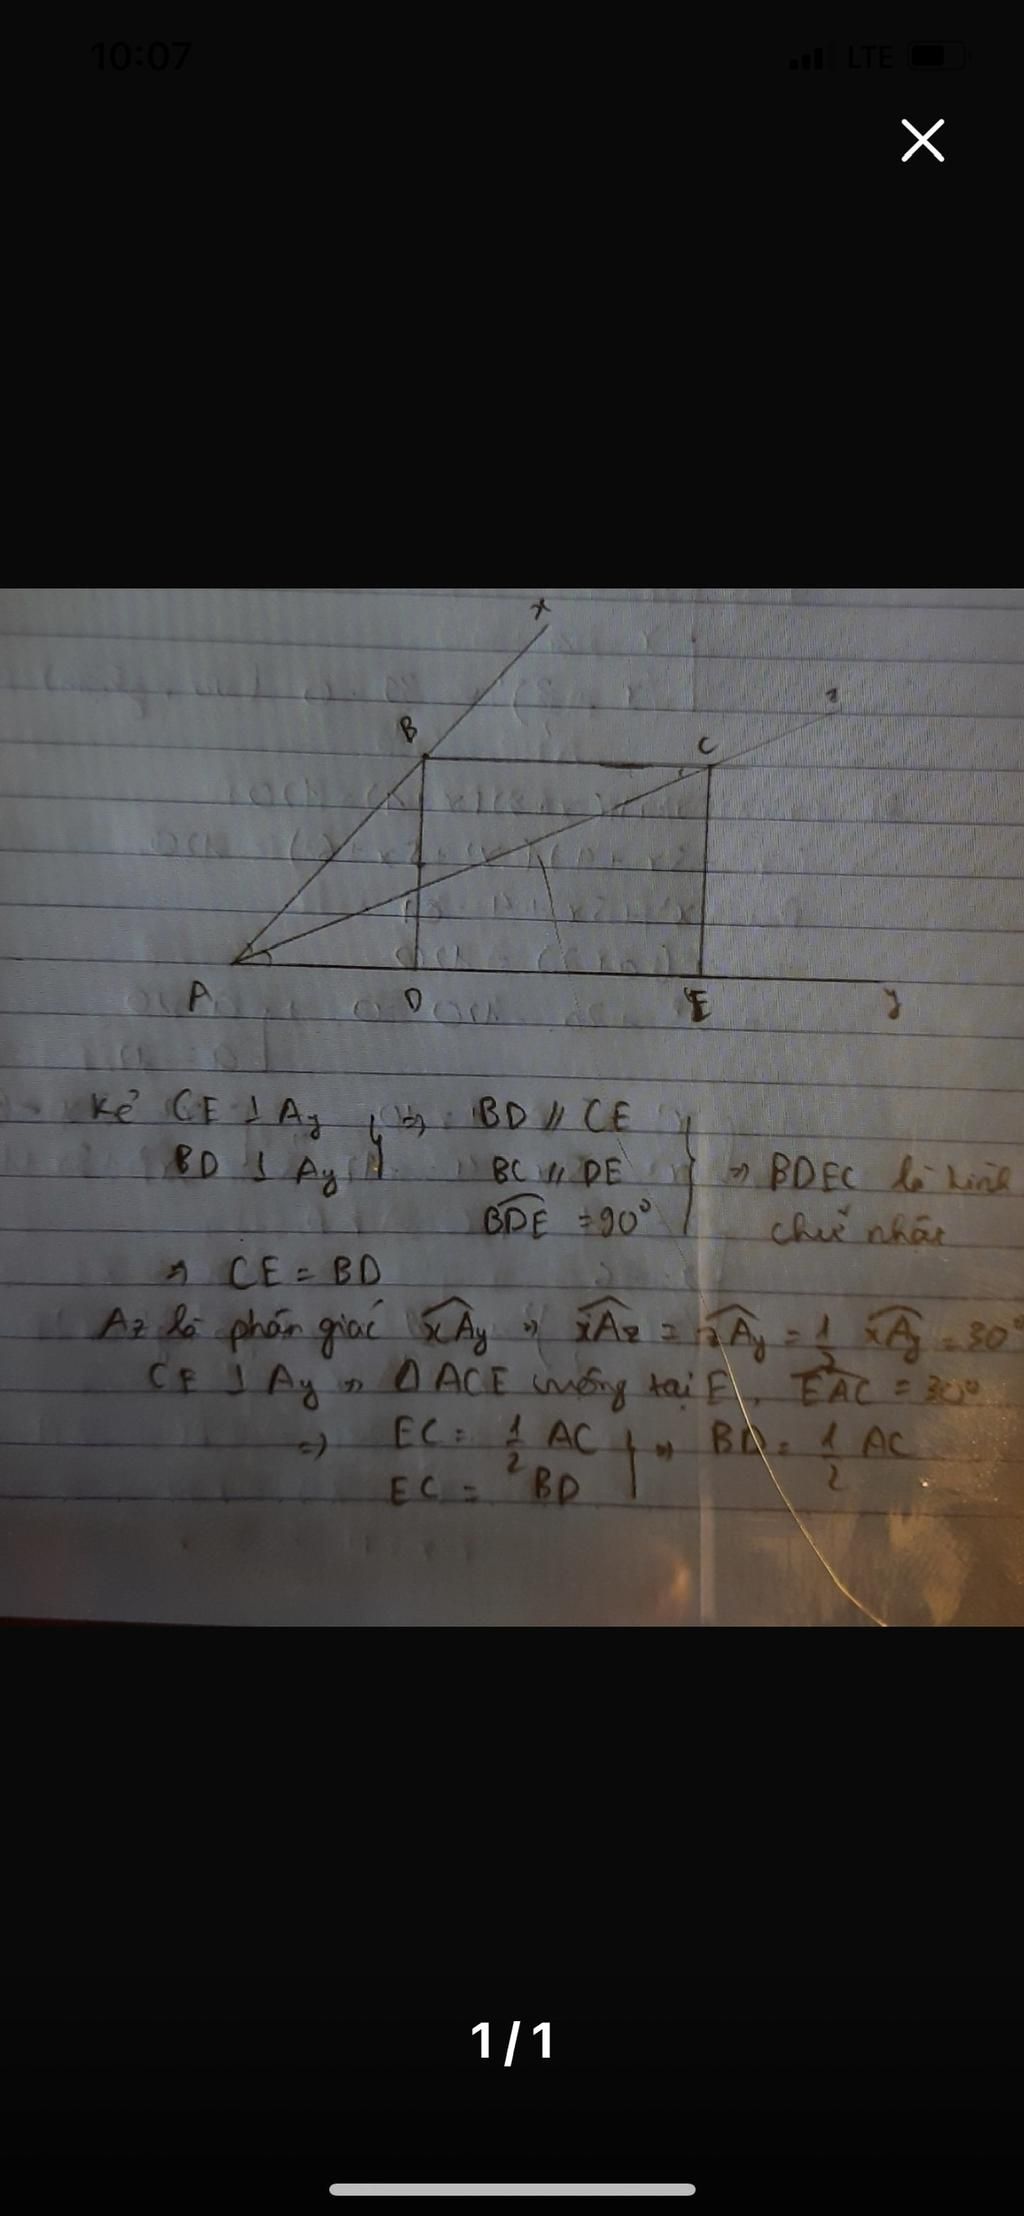 10:07
LTE
x
z
B
C
A
D
E
y
Kẻ CE ⊥ Ay } => BD // CE
BD ⊥ Ay BC // DE } => BDEC là hình
BDE = 90° chữ nhật
=> CE = BD
Az là phân giác xAy => xAz = zAy = 1/2 xAy = 30°
CE ⊥ Ay => Δ ACE vuông tại E, EAC = 30°
=> EC = 1/2 AC } => BD = 1/2 AC
EC = BD
1/1